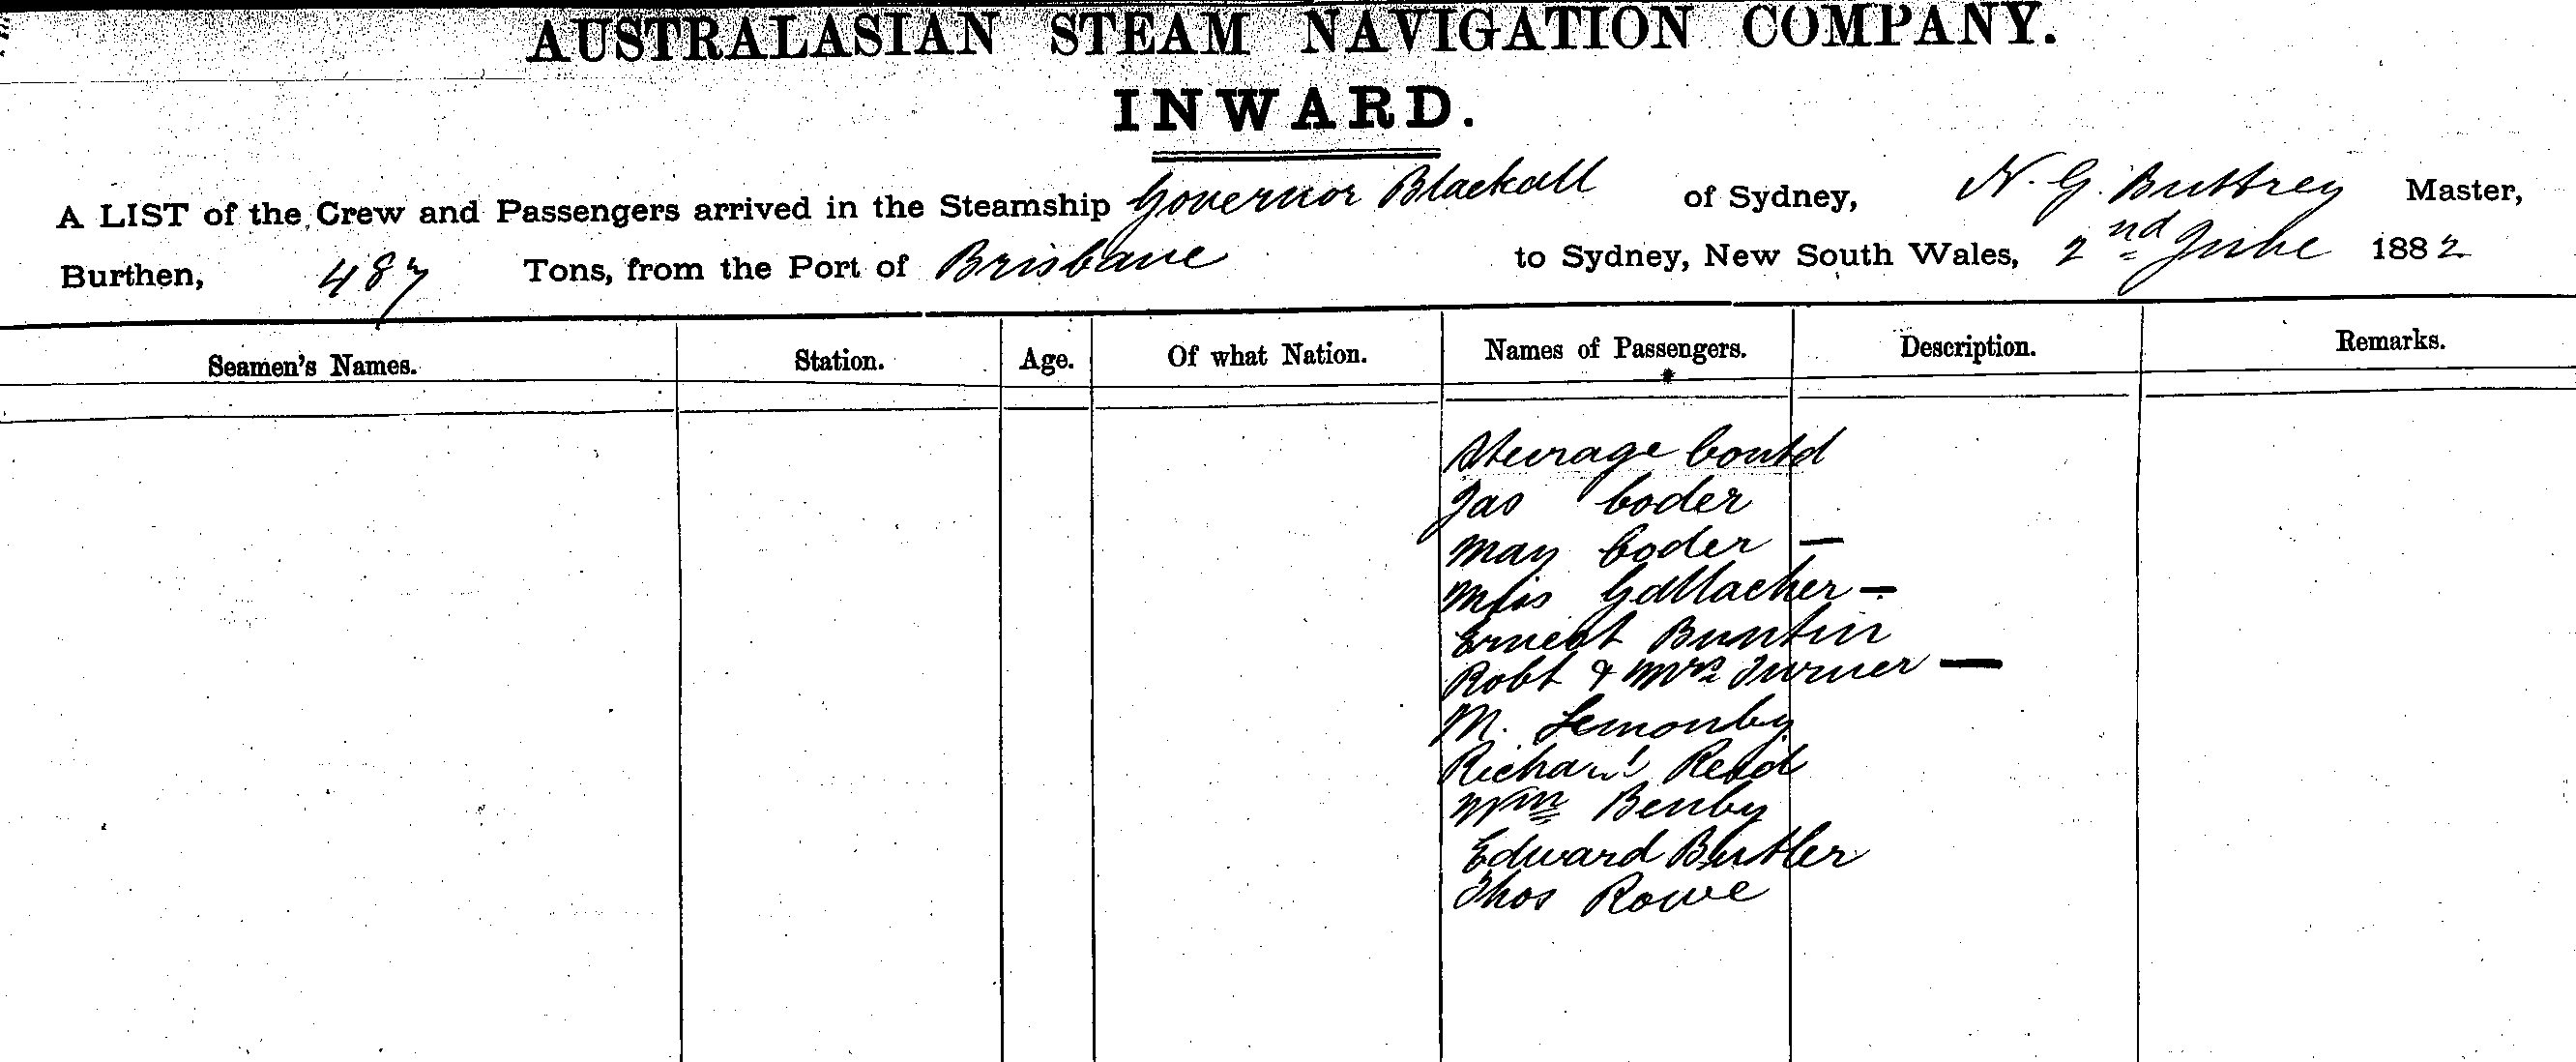 AUSTRALASIAN STEAM NAVIGATION COMPANY.
INWARD.
A LIST of the Crew and Passengers arrived in the Steamship Governor Blackall of Sydney, N. G. Buttrey Master,
Burthen, 487 Tons, from the Port of Brisbane to Sydney, New South Wales, 2nd June 1882
Seamen's Names. Station. Age. Of what Nation. Names of Passengers. Description. Remarks.
Steerage Contd
Jas Coder
May Coder —
Miss Gallacher —
Ernest Buntin
Robt & Mrs Turner —
M. Lemonby
Richard Read
Wm Benby
Edward Butler
Thos Rowe